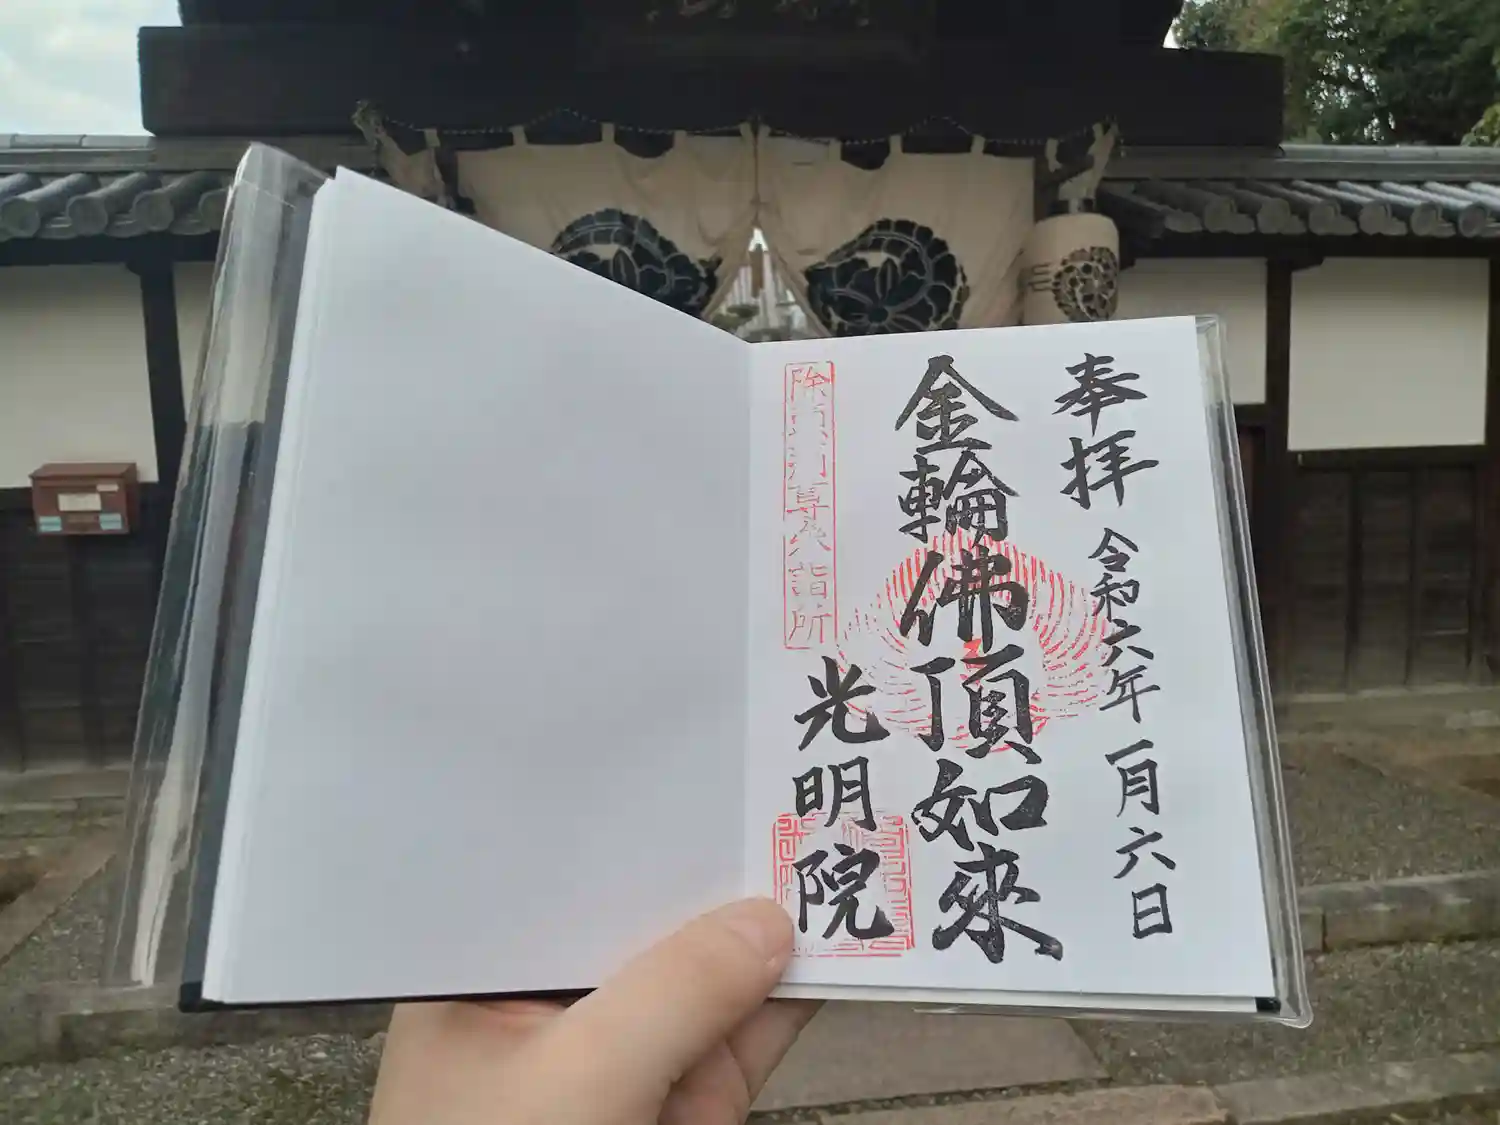 奉拝 令和六年 一月六日
金輪佛頂如來
光明院